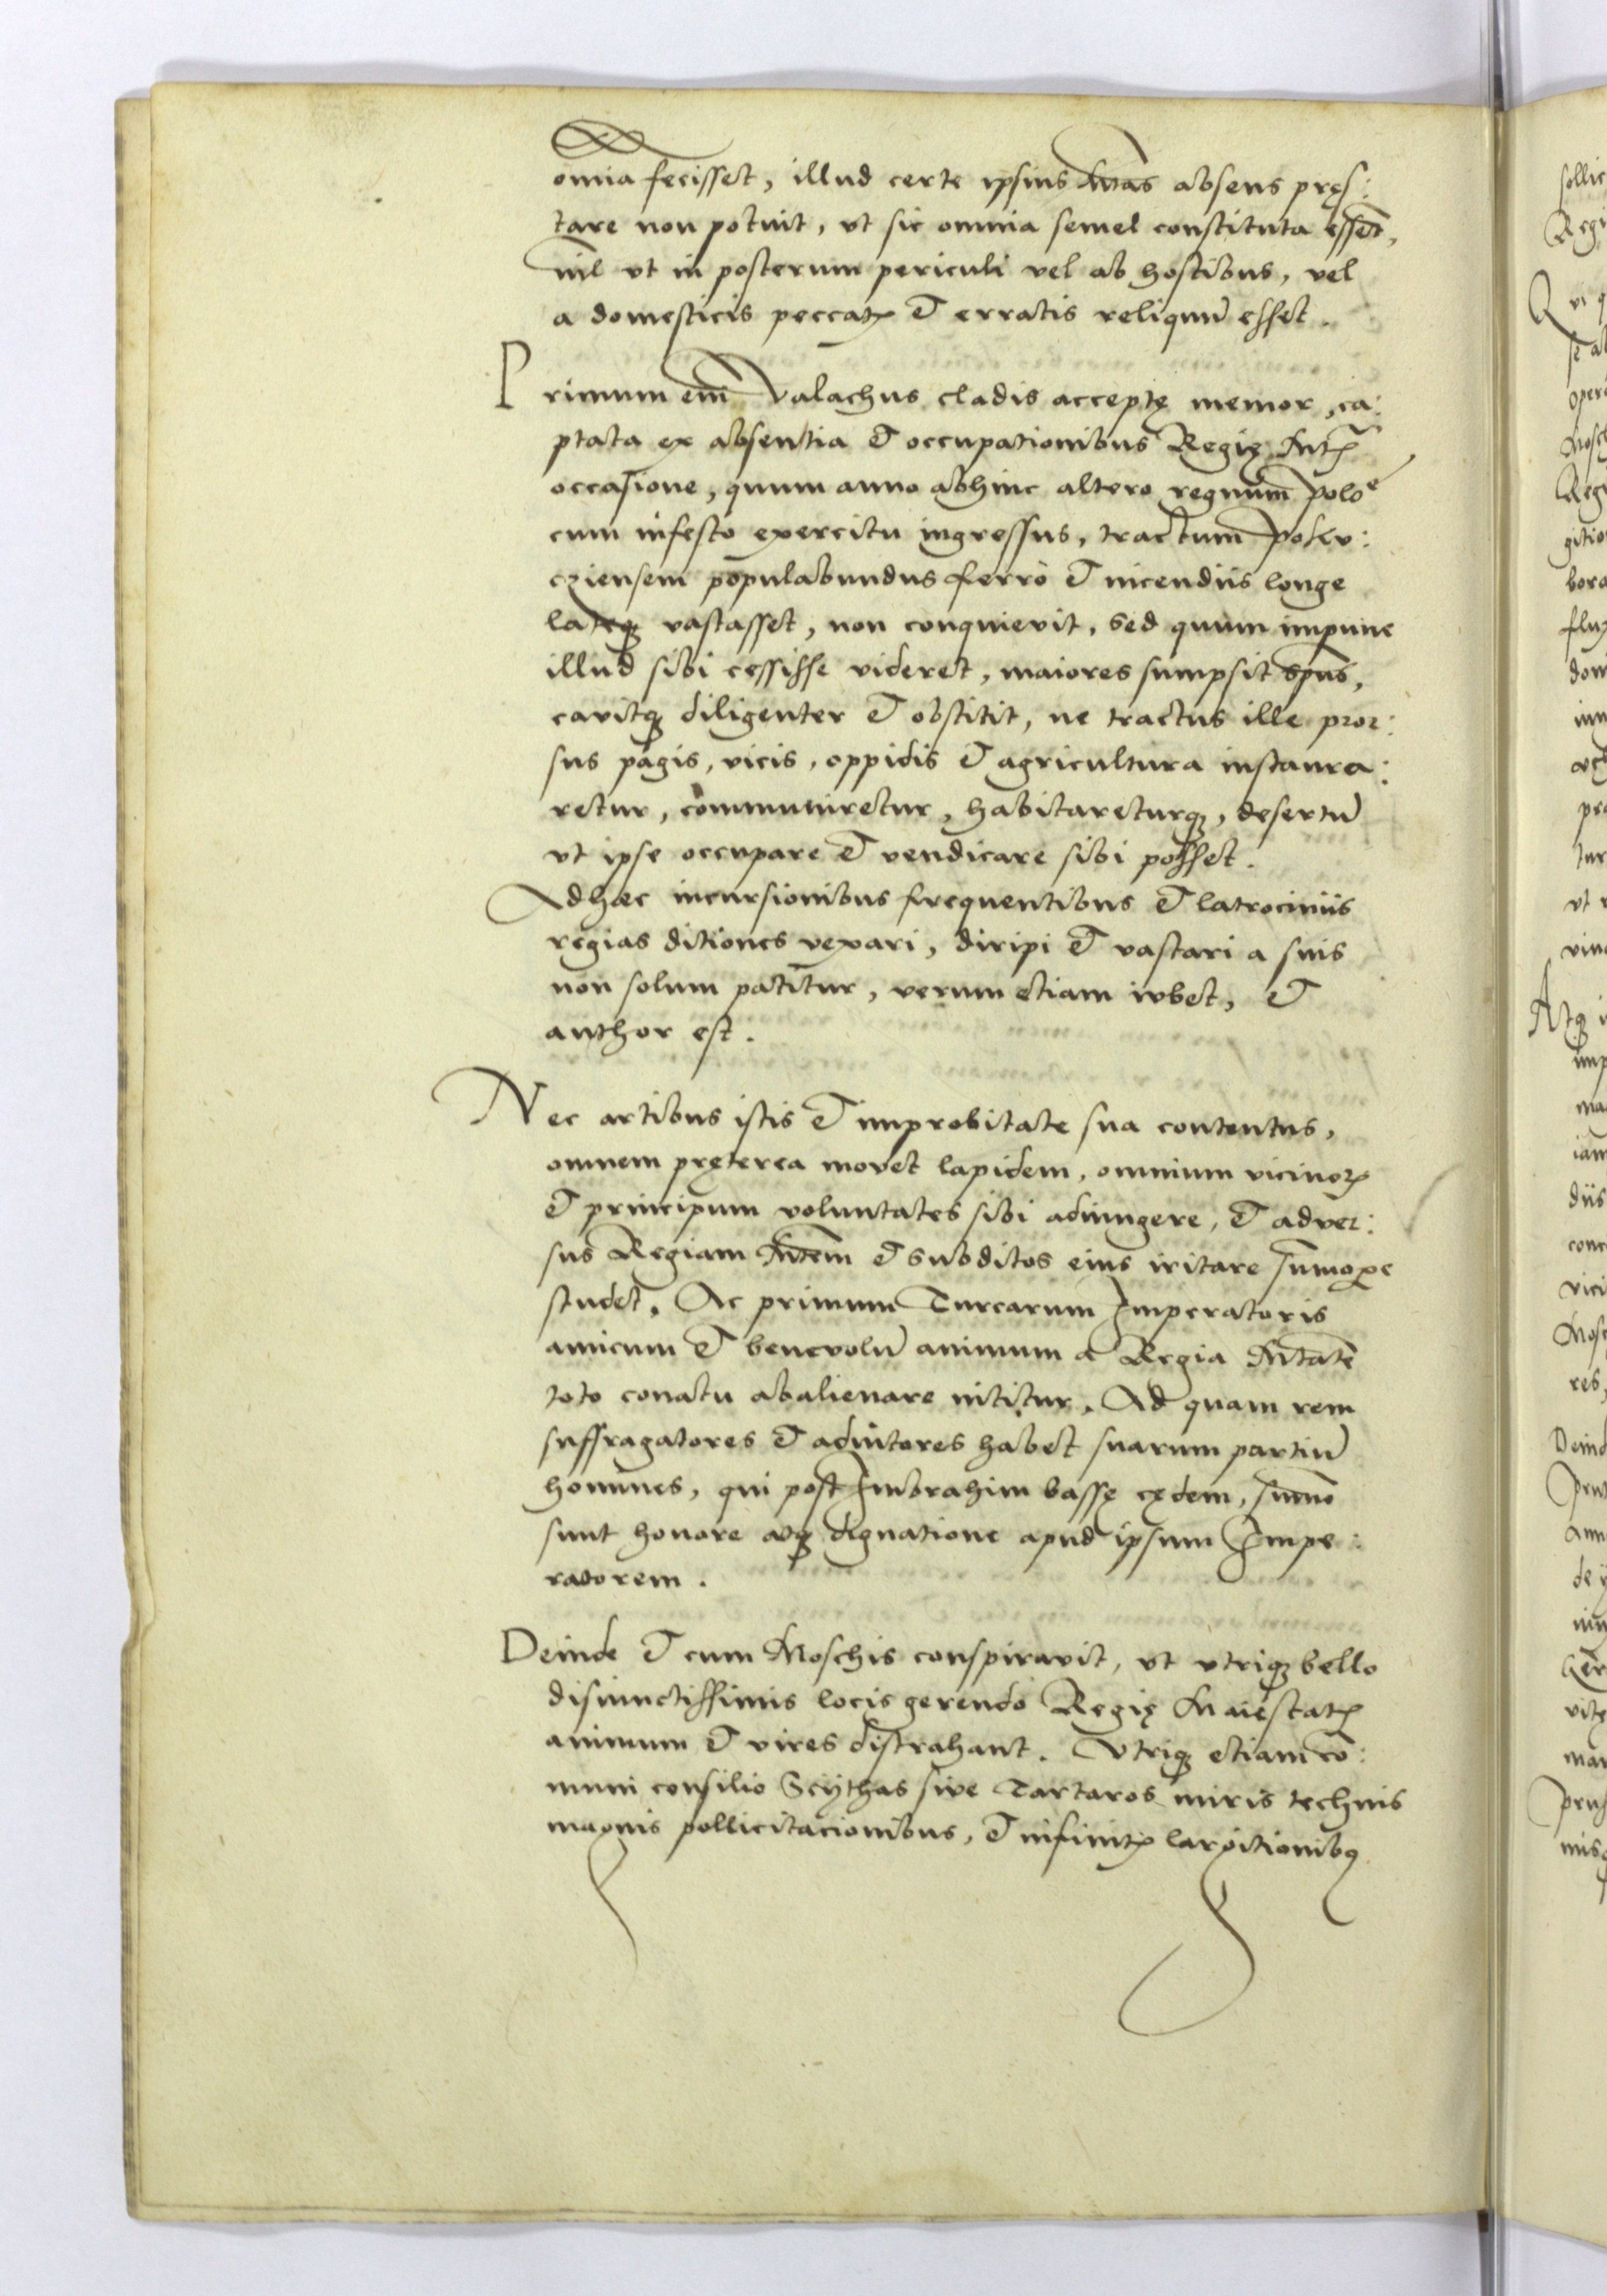 omnia fecisset, illud certe ipsius Mtas absens pręs:
tare non potuit, ut sic omnia semel constituta essēt,
nil ut in posterum periculi vel ab hostibus, vel
a domesticis peccatis et erratis reliquū esset.
Primum em̄ Valachus cladis acceptę memor, ca:
ptata ex absentia et occupationibus Regię Mtis
occasione, quum anno abhinc altero regnum Polōe
cum infesto exercitu ingressus, tractum Poku:
cziensem populabundus ferro et incendiis longe
lateq; vastasset, non conquievit, sed quum impune
illud sibi cessisse videret, maiores sumpsit sp̄us,
cavitq; diligenter et obstitit, ne tractus ille pror:
sus pagis, vicis, oppidis et agricultura instaura:
retur, communiretur, habitareturq;, desertū
ut ipse occupare et vendicare sibi posset.
Ad hæc incursionibus frequentibus et latrociniis
regias ditiones vexari, diripi et vastari a suis
non solum patitur, verum etiam iubet, et
author est.
Nec artibus istis et improbitate sua contentus,
omnem pręterea movet lapidem, omnium vicinorꝝ
et principum voluntates sibi adiungere, et adver:
sus Regiam Mtem et subditos eius iritare sum̄oꝑe
studet. Ac primum Turcarum Imperatoris
amicum et benevolū animum a Regia Mtate
toto conatu abalienare nititur. Ad quam rem
suffragatores et adiutores habet suarum partiū
homines, qui post Imbrahim bassę cędem, sum̄o
sunt honore atq; dignatione apud ipsum Impe:
ratorem.
Deinde et cum Moschis conspiravit, ut utriq; bello
disiunctissimis locis gerendo Regię Maiestatis
animum et vires distrahant. Utriq; etiam cō:
muni consilio Scythas sive Tartaros miris technis
magnis pollicitacionibus, et infinitis largitionibꝰ